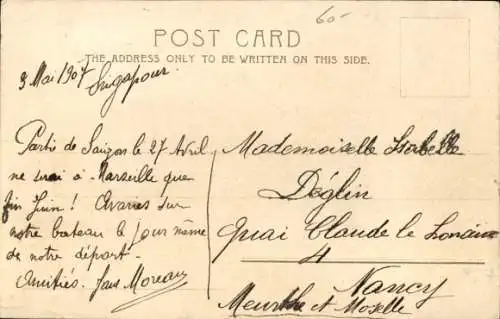 60-
POST CARD
THE ADDRESS ONLY TO BE WRITTEN ON THIS SIDE.
3 Mai 1907
Singapour.
Partie de Saigon le 27 Avril
ne serai à Marseille que
fin Juin! Avaries sur
notre bateau le jour même
de notre départ.
Amitiés. Moreau
Mademoiselle Isabelle
Déglin
Quai Claude le Lorrain
4
Nancy
Meurthe et Moselle